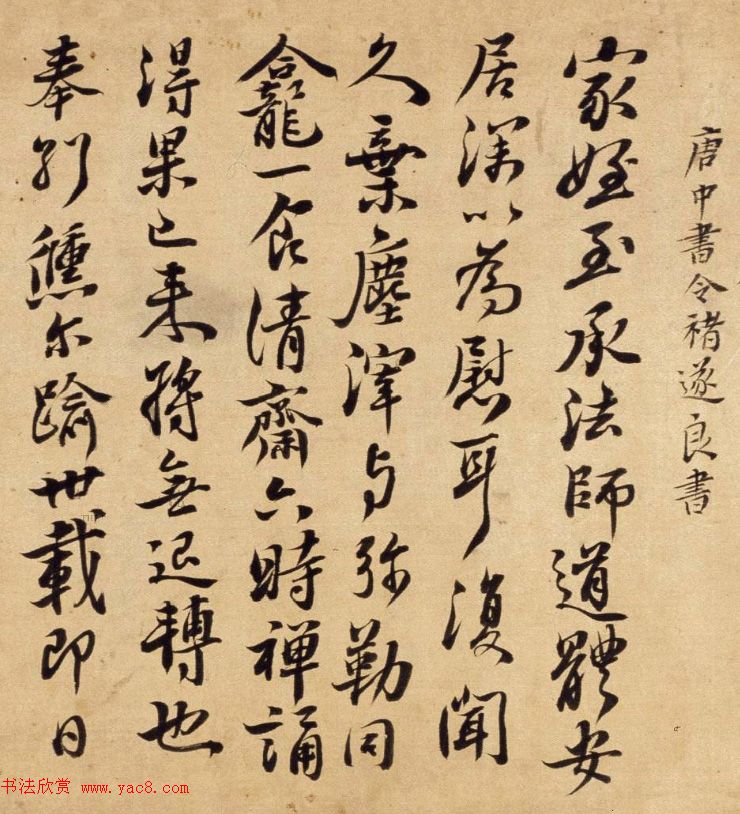 唐中書令褚遂良書
家姪至承法師道體安
居深以為慰耳復聞
久棄塵滓与弥勒同
龕一食清齋六時禅誦
得果已来將無退轉也
奉別儵尔踰卅載即日
书法欣赏 www.yac8.com